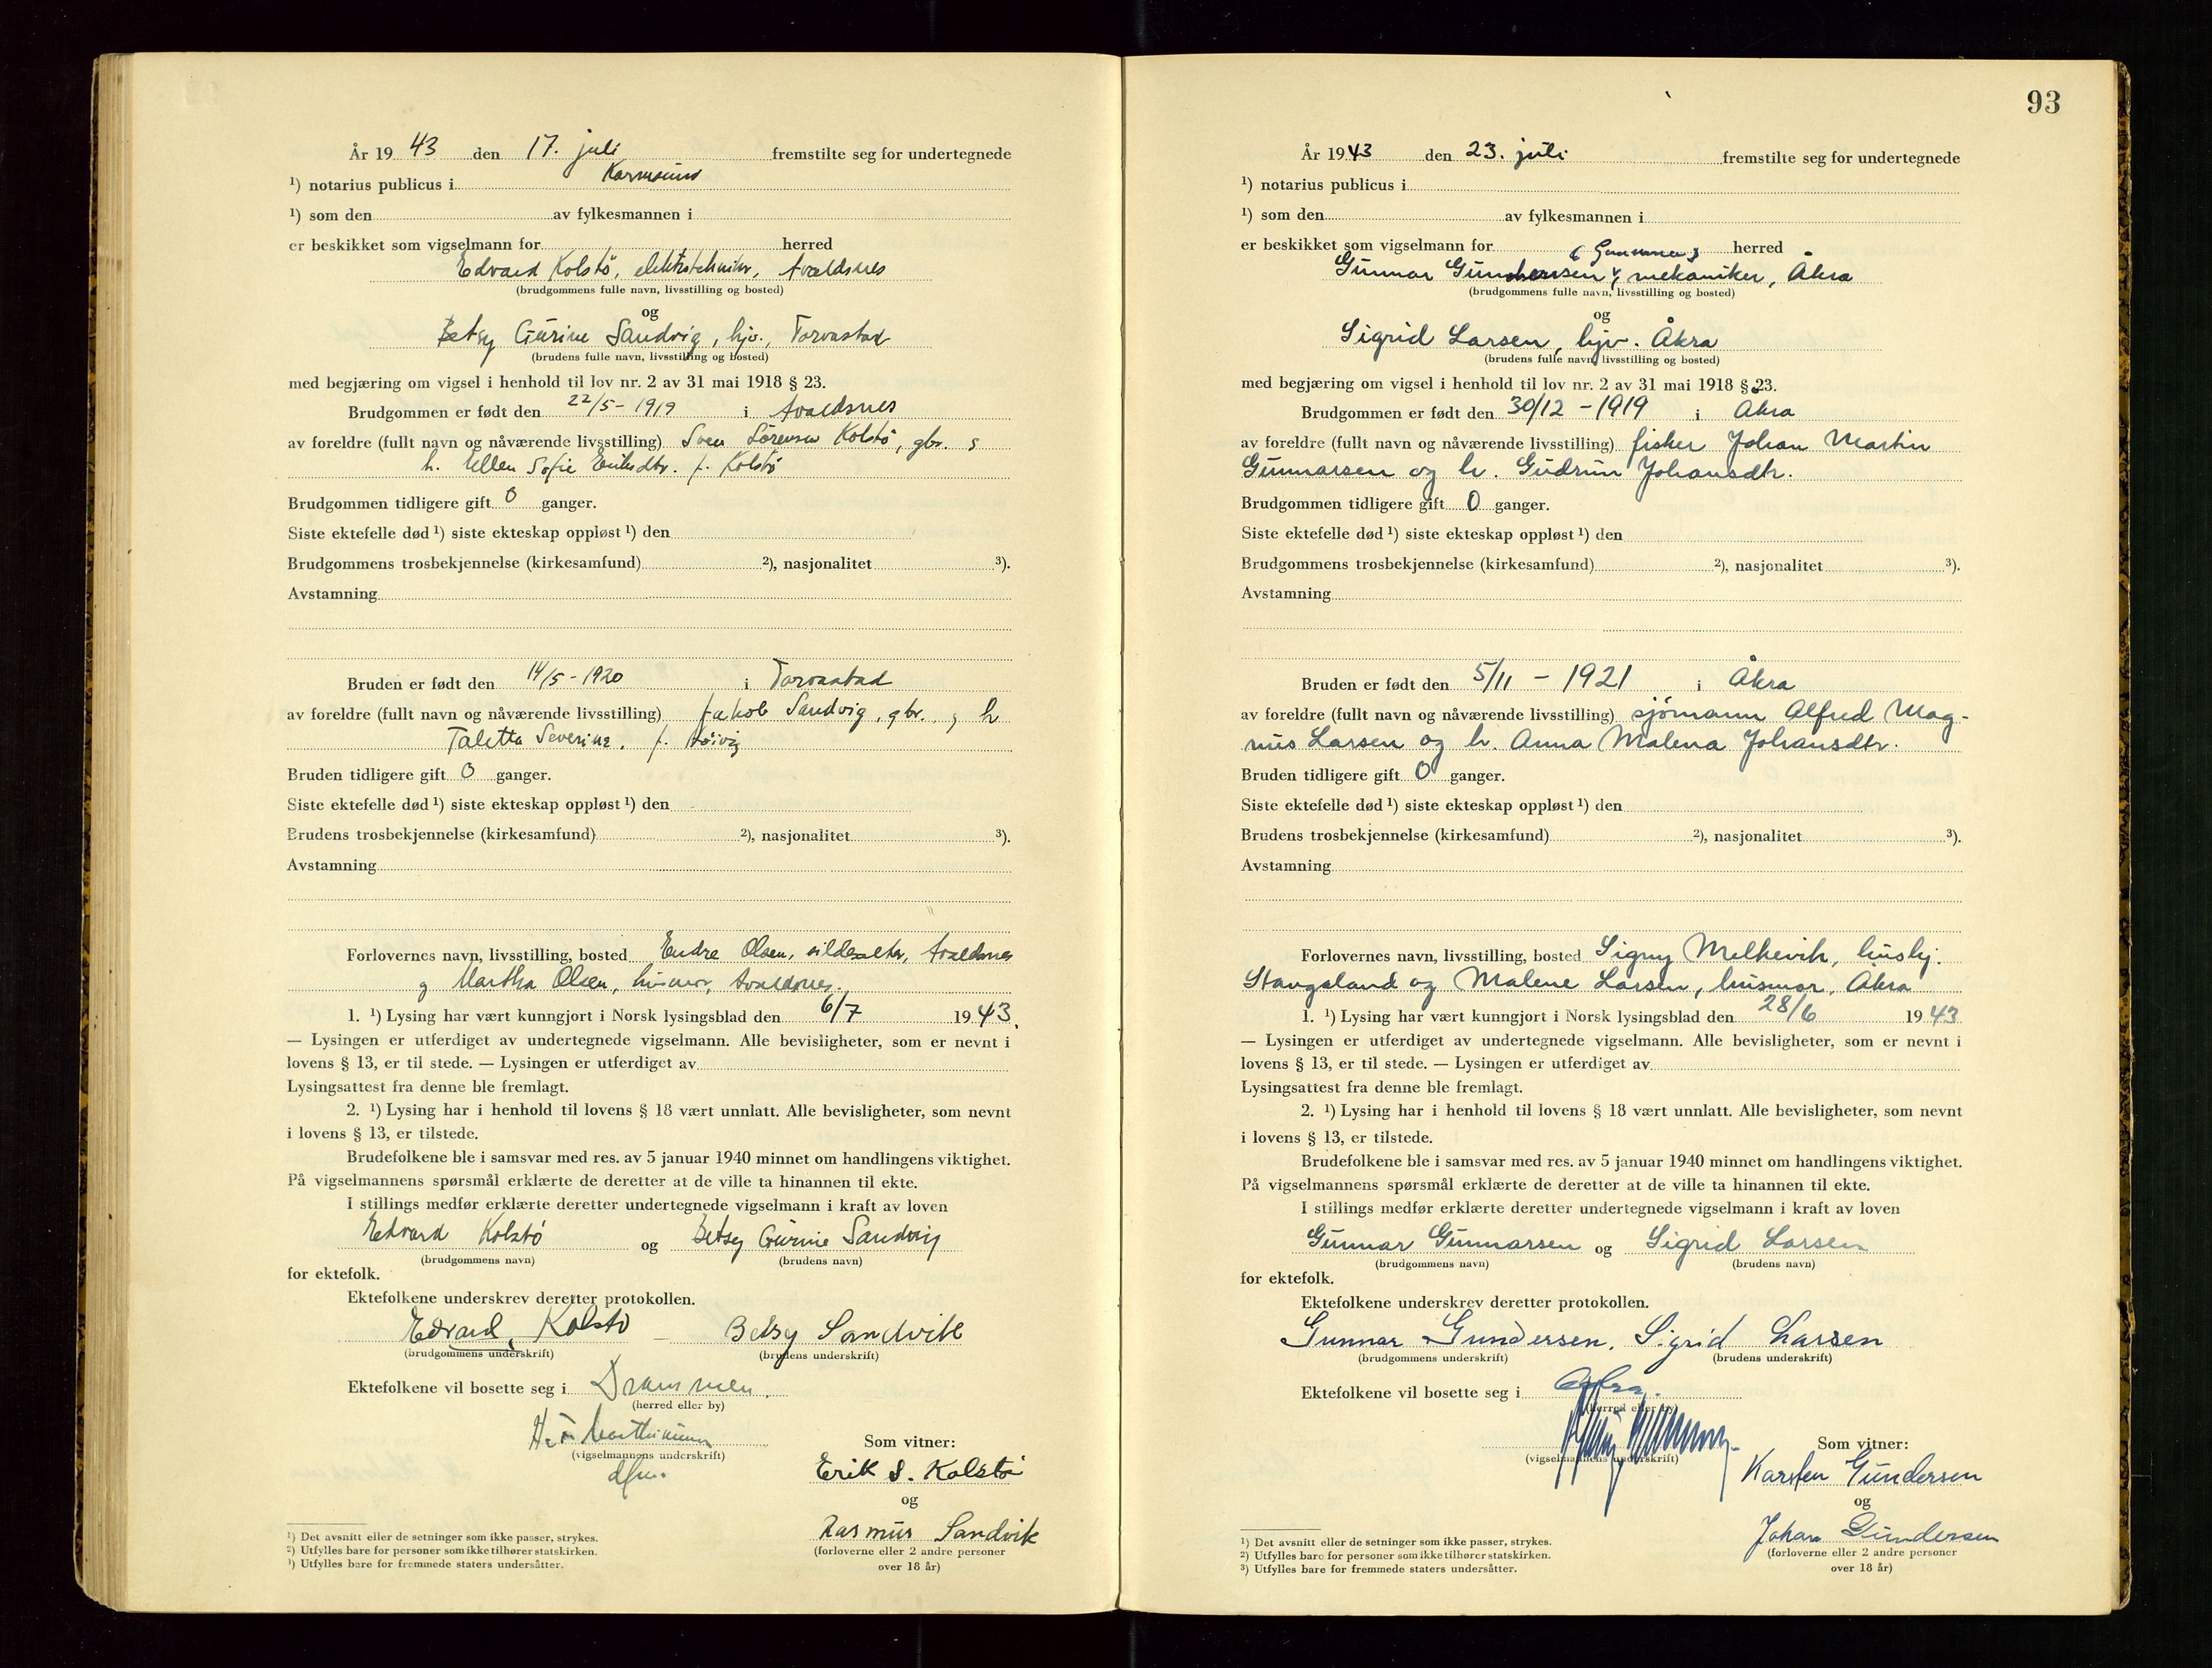 År 1943 den 17. juli fremstilte seg for undertegnede
¹) notarius publicus i Karmsund
¹) som den av fylkesmannen i
er beskikket som vigselmann for herred
Edvard Kolstö, elektrotekniker, Avaldsnes
(brudgommens fulle navn, livsstilling og bosted)
og
Betsy Gurine Sandvig, hjv., Torvastad
(brudens fulle navn, livsstilling og bosted)
med begjæring om vigsel i henhold til lov nr. 2 av 31 mai 1918 § 23.
Brudgommen er født den 22/5 - 1919 i Avaldsnes
av foreldre (fullt navn og nåværende livsstilling) Sven Sörensen Kolstö, gbr. og
h. Ellen Sofie Eriksdtr. f. Kolstö
Brudgommen tidligere gift 0 ganger.
Siste ektefelle død ¹) siste ekteskap oppløst ¹) den
Brudgommens trosbekjennelse (kirkesamfund) ²), nasjonalitet ³).
Avstamning
Bruden er født den 14/5 - 1920 i Torvastad
av foreldre (fullt navn og nåværende livsstilling) Jakob Sandvig, gbr. og h
Taletta Severine. f.
Bruden tidligere gift 0 ganger.
Siste ektefelle død ¹) siste ekteskap oppløst ¹) den
Brudens trosbekjennelse (kirkesamfund) ²), nasjonalitet ³).
Avstamning
Forlovernes navn, livsstilling, bosted Endre Olsen, sildesalter, Avaldsnes
og Martha Olsen, husmor, Avaldsnes.
1. ¹) Lysing har vært kunngjort i Norsk lysingsblad den 6/7 1943.
— Lysingen er utferdiget av undertegnede vigselmann. Alle bevisligheter, som er nevnt i
lovens § 13, er til stede. — Lysingen er utferdiget av
Lysingsattest fra denne ble fremlagt.
2. ¹) Lysing har i henhold til lovens § 18 vært unnlatt. Alle bevisligheter, som nevnt
i lovens § 13, er tilstede.
Brudefolkene ble i samsvar med res. av 5 januar 1940 minnet om handlingens viktighet.
På vigselmannens spørsmål erklærte de deretter at de ville ta hinannen til ekte.
I stillings medfør erklærte deretter undertegnede vigselmann i kraft av loven
Edvard Kolstö og Betsy Gurine Sandvig
(brudgommens navn) (brudens navn)
for ektefolk.
Ektefolkene underskrev deretter protokollen.
Edvard Kolstö — Betsy Sandvik
(brudgommens underskrift) (brudens underskrift)
Ektefolkene vil bosette seg i Drammen.
(herred eller by)
(vigselmannens underskrift)
Som vitner:
Erik S. Kolstö
og
Rasmus Sandvik
(forloverne eller 2 andre personer
over 18 år)
¹) Det avsnitt eller de setninger som ikke passer, strykes.
²) Utfylles bare for personer som ikke tilhører statskirken.
³) Utfylles bare for fremmede staters undersåtter.
93
År 1943 den 23. juli fremstilte seg for undertegnede
¹) notarius publicus i
¹) som den av fylkesmannen i
er beskikket som vigselmann for herred
Gunnar Gundersen, mekaniker, Åkra
(brudgommens fulle navn, livsstilling og bosted)
og
Sigrid Larsen, hjv. Åkra
(brudens fulle navn, livsstilling og bosted)
med begjæring om vigsel i henhold til lov nr. 2 av 31 mai 1918 § 23.
Brudgommen er født den 30/12 - 1919 i Åkra
av foreldre (fullt navn og nåværende livsstilling) fisker Johan Martin
Gunnarsen og h. Gudrun Johansdtr.
Brudgommen tidligere gift 0 ganger.
Siste ektefelle død ¹) siste ekteskap oppløst ¹) den
Brudgommens trosbekjennelse (kirkesamfund) ²), nasjonalitet ³).
Avstamning
Bruden er født den 5/11 - 1921 i Åkra
av foreldre (fullt navn og nåværende livsstilling) sjömann Alfred Mag-
nus Larsen og h. Anna Malena Johansdtr.
Bruden tidligere gift 0 ganger.
Siste ektefelle død ¹) siste ekteskap oppløst ¹) den
Brudens trosbekjennelse (kirkesamfund) ²), nasjonalitet ³).
Avstamning
Forlovernes navn, livsstilling, bosted Signy Melkevik, hushj.
Stangeland og Malene Larsen, husmor, Åkra
1. ¹) Lysing har vært kunngjort i Norsk lysingsblad den 28/6 1943
— Lysingen er utferdiget av undertegnede vigselmann. Alle bevisligheter, som er nevnt i
lovens § 13, er til stede. — Lysingen er utferdiget av
Lysingsattest fra denne ble fremlagt.
2. ¹) Lysing har i henhold til lovens § 18 vært unnlatt. Alle bevisligheter, som nevnt
i lovens § 13, er tilstede.
Brudefolkene ble i samsvar med res. av 5 januar 1940 minnet om handlingens viktighet.
På vigselmannens spørsmål erklærte de deretter at de ville ta hinannen til ekte.
I stillings medfør erklærte deretter undertegnede vigselmann i kraft av loven
Gunnar Gunnarsen og Sigrid Larsen
(brudgommens navn) (brudens navn)
for ektefolk.
Ektefolkene underskrev deretter protokollen.
Gunnar Gundersen. Sigrid Larsen
(brudgommens underskrift) (brudens underskrift)
Ektefolkene vil bosette seg i
(herred eller by)
(vigselmannens underskrift)
Som vitner:
Karsten Gundersen
og
Johan Gundersen
(forloverne eller 2 andre personer
over 18 år)
¹) Det avsnitt eller de setninger som ikke passer, strykes.
²) Utfylles bare for personer som ikke tilhører statskirken.
³) Utfylles bare for fremmede staters undersåtter.